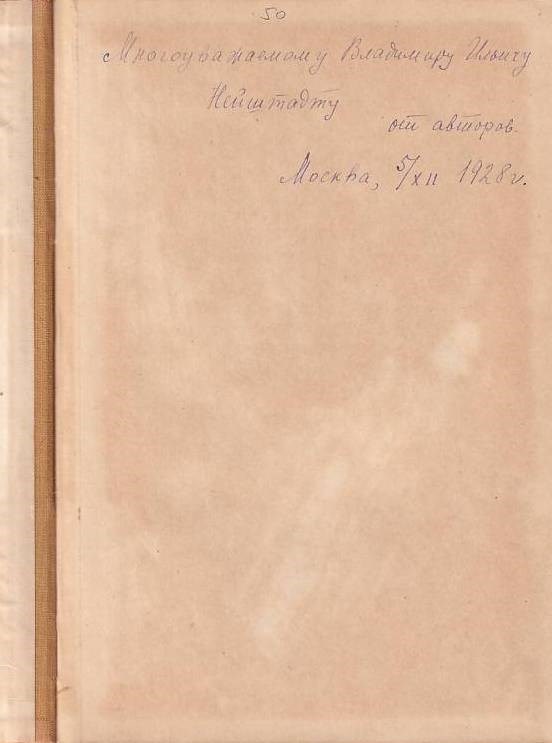 50
Многоуважаемому Владимиру Ильичу
Нейштадту
от авторов.
Москва, 5/XII 1928 г.